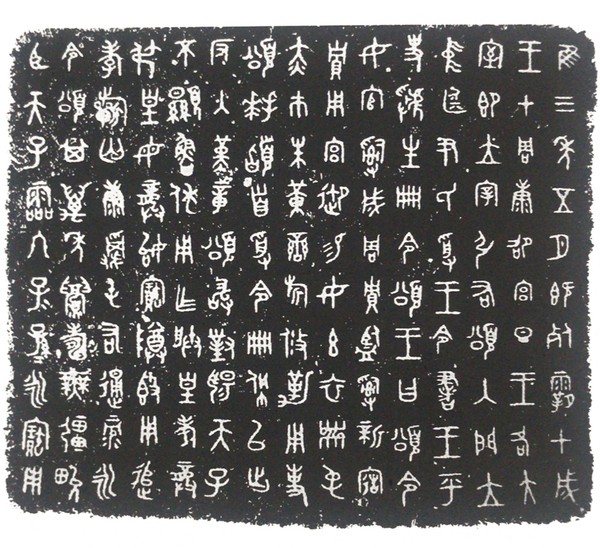 隹三年五月既死霸甲戌
王才周康卲宮旦王各大
室即立宰引右頌入門立
中廷尹氏受王令書王乎
史虢生冊令頌王曰頌令
女官𤔲成周貯監𤔲新造
貯用宮御易女玄衣黹屯
赤巿朱黃鑾旂攸勒用事
頌拜𩒨首受令冊佩以出
反入堇章頌敢對揚天子
不顯魯休用乍朕皇考龏
叔皇母龏始寶尊鼎用追
孝祈匄康𠱠屯右通彔永
令頌其萬年眉壽無彊畯
臣天子霝冬子孫永寶用